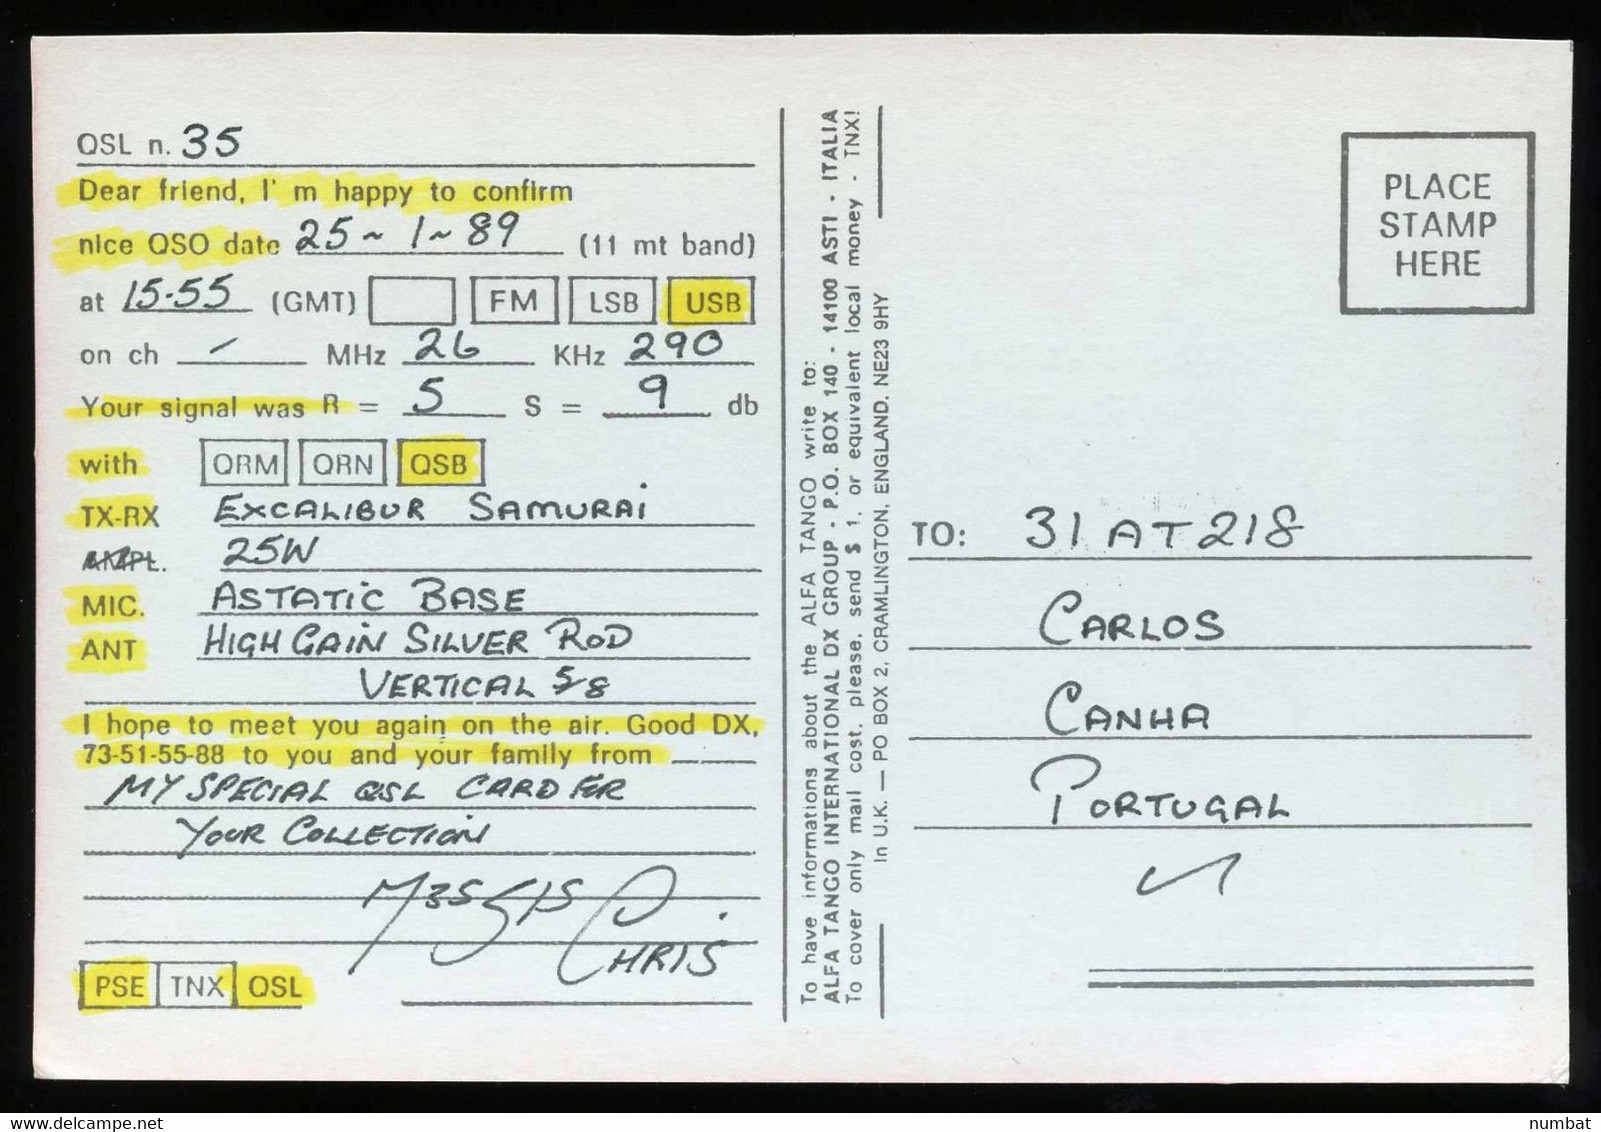 QSL n. 35
Dear friend, I'm happy to confirm
nice QSO date 25~1~89 (11 mt band)
at 15.55 (GMT) FM LSB USB
on ch / MHz 26 KHz 290
Your signal was R = 5 S = 9 db
with QRM QRN QSB
TX-RX EXCALIBUR SAMURAI
AMPL. 25W
MIC. ASTATIC BASE
ANT HIGH GAIN SILVER ROD
VERTICAL 5/8
I hope to meet you again on the air. Good DX,
73-51-55-88 to you and your family from
MY SPECIAL QSL CARD FOR
YOUR COLLECTION
73S 51S
CHRIS
PSE TNX QSL
To have informations about the ALFA TANGO write to:
ALFA TANGO INTERNATIONAL DX GROUP - P.O. BOX 140 - 14100 ASTI - ITALIA
To cover only mail cost, please, send $ 1. or equivalent local money - TNX!
In U.K. — PO BOX 2, CRAMLINGTON, ENGLAND. NE23 9HY
PLACE
STAMP
HERE
TO: 31 AT 218
CARLOS
CANHA
PORTUGAL
numbat